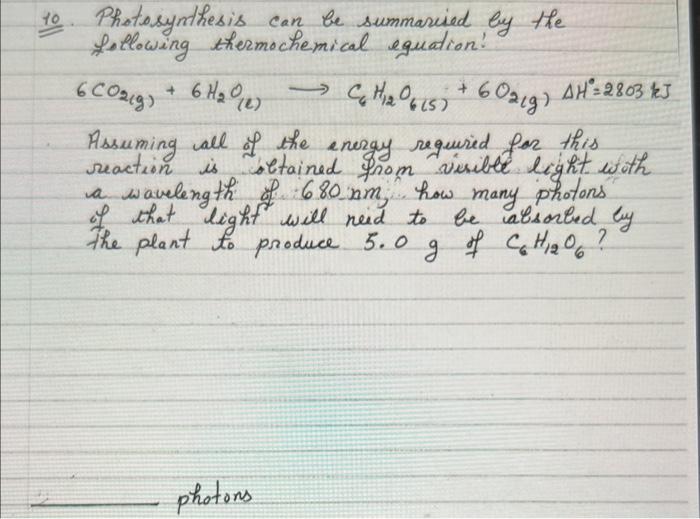 10. Photosynthesis can be summarised by the
following thermochemical equation!
6CO2(g) + 6H2O(l) → C6H12O6(s) + 6O2(g) ΔH°=2803 kJ
Assuming all of the energy required for this
reaction is obtained from visible light with
a wavelength of 680 nm, how many photons
of that light will need to be absorbed by
the plant to produce 5.0 g of C6H12O6?
photons